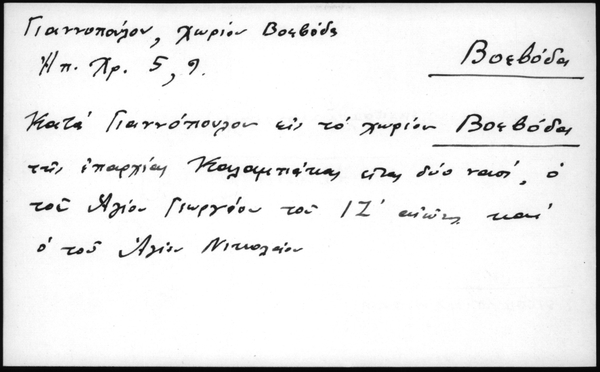 Γιαννοπούλου, χωρίον Βοεβόδα
Βοεβόδα
Ηπ. Χρ. 5, 9.
Κατά Γιαννόπουλον εις τό χωρίον Βοεβόδα
τῆς ἐπαρχίας Καλαμπάκας εἶναι δύο ναοί, ὁ
τοῦ Ἁγίου Γεωργίου τοῦ ΙΖ' αἰῶνος καί
ὁ τοῦ Ἁγίου Νικολάου